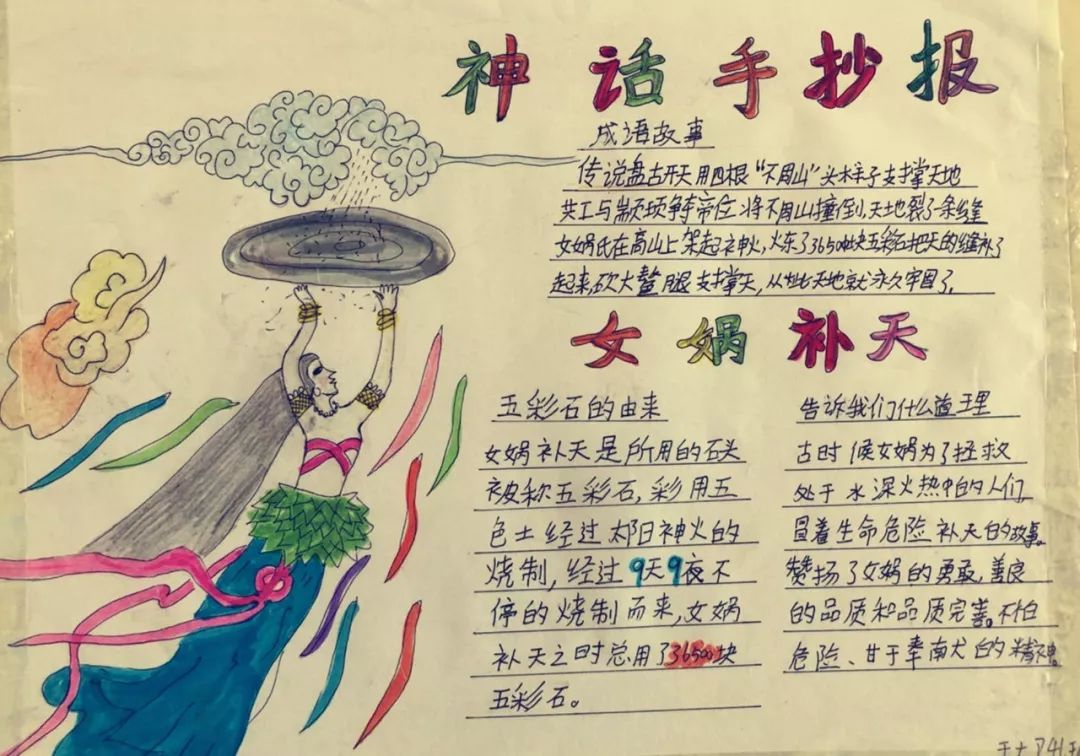 神话手抄报
成语故事
传说盘古开天用四根“不周山”头柱子支撑天地
共工与颛顼争帝位将不周山撞倒,天地裂了一条缝
女娲氏在高山上架起神火,火东了36500块五彩石把天的缝补了
起来,砍大鳌腿支撑天,从此天地就永久牢固了,
女娲补天
五彩石的由来
女娲补天是所用的石头
被称五彩石,彩用五
色土经过太阳神火的
烧制,经过9天9夜不
停的烧制而来,女娲
补天之时总用了36500块
五彩石。
告诉我们什么道理
古时候女娲为了拯救
处于水深火热中的人们,
冒着生命危险补天的故事。
赞扬了女娲的勇敢,善良
的品质和品质完善。不怕
危险、甘于奉南犬的精神。